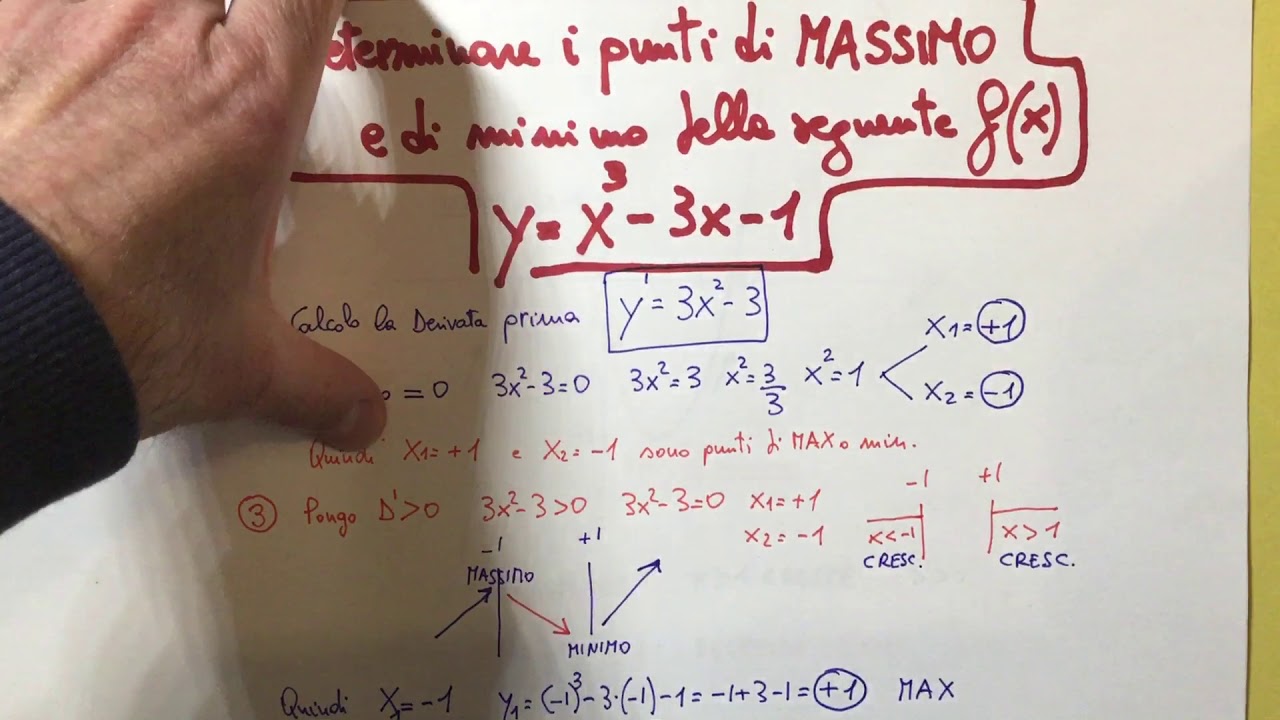 eterminare i punti di MASSIMO
e di minimo della seguente f(x)
y = x³ - 3x - 1
Calcolo la Derivata prima y' = 3x² - 3
= 0 3x² - 3 = 0 3x² = 3 x² = 3/3 x² = 1 x₁ = +1 x₂ = -1
Quindi x₁ = +1 e x₂ = -1 sono punti di MAX o min.
③ Pongo D' > 0 3x² - 3 > 0 3x² - 3 = 0 x₁ = +1 x₂ = -1
-1 +1
x < -1 x > 1
CRESC. CRESC.
-1 +1
MASSIMO
MINIMO
Quindi x₁ = -1 y₁ = (-1)³ - 3·(-1) - 1 = -1 + 3 - 1 = +1 MAX